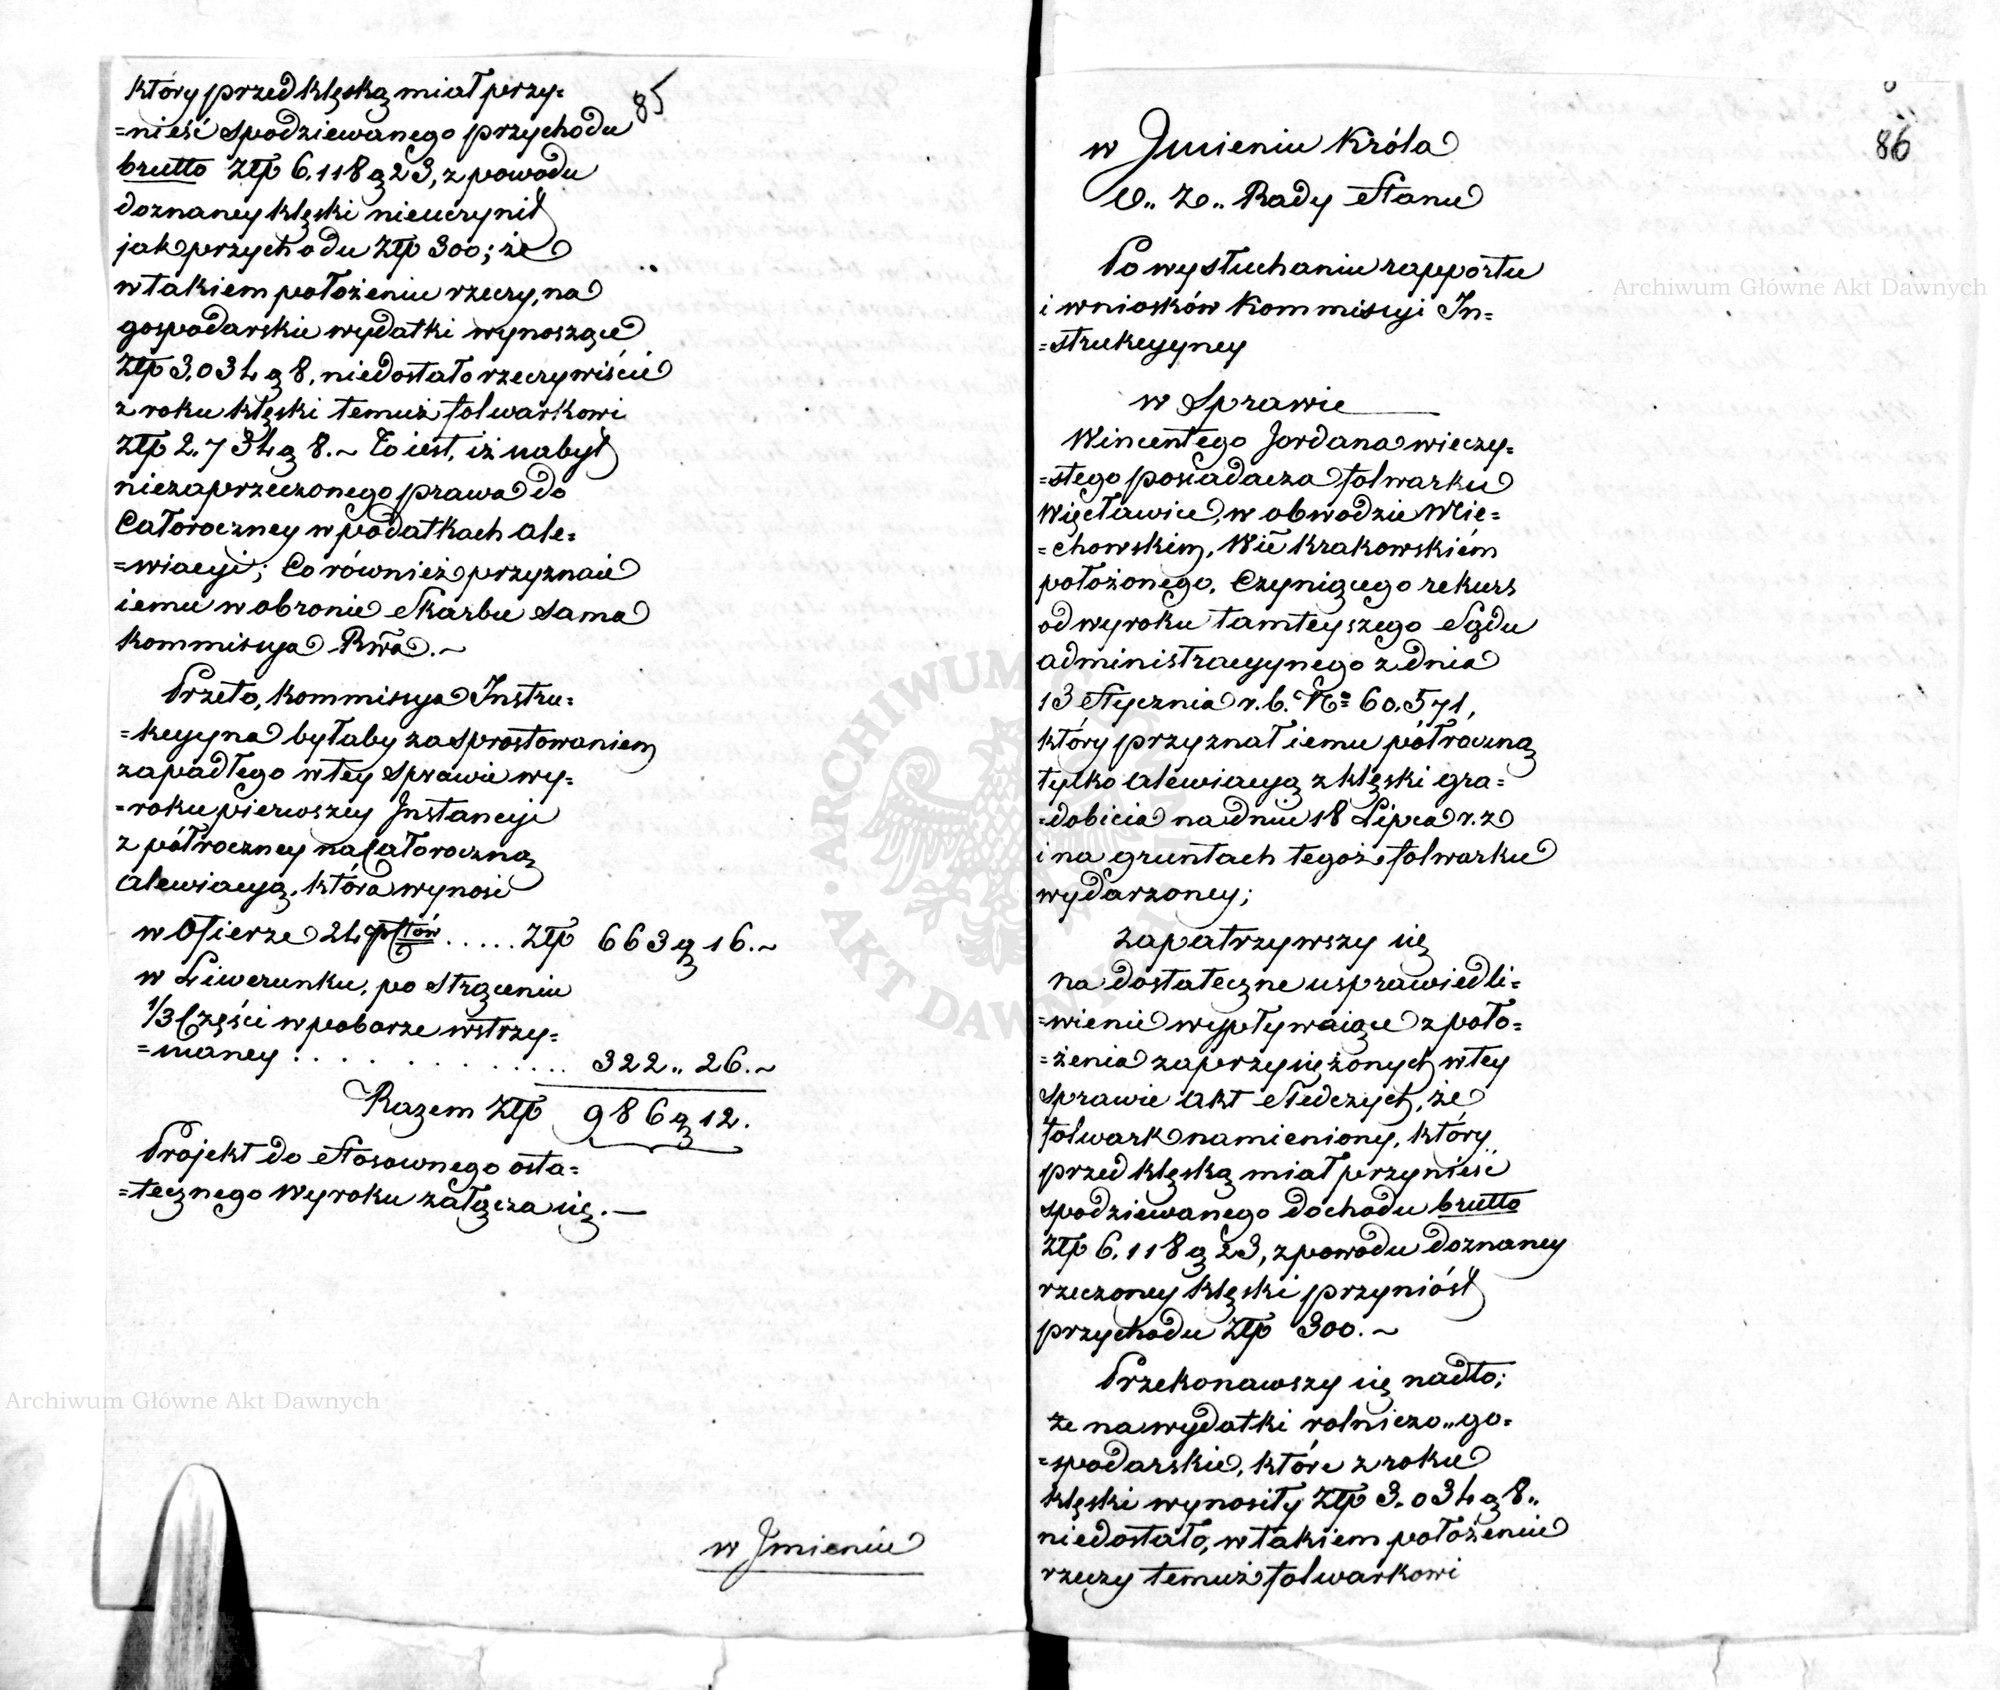 85
który przed klęską miał przy-
=nieść spodziewanego przychodu
brutto Złp 6.118 g 23, z powodu
doznaney klęski nieuczynił
jak przychodu Złp 300; że
w takiem położeniu rzeczy, na
gospodarskie wydatki wynoszące
Złp 3.034 g 8, niedostało rzeczywiście
z roku klęski temuż folwarkowi
Złp 2.734 g 8.~ To iest, iż nabył
niezaprzeczonego prawa do
Całoroczney w podatkach ale=
=wiacyi; Co również przyznaie
iemu w obronie Skarbu sama
Kommissya Rwa.~
Przeto, Kommissya Instru=
=kcyyna byłaby za sprostowaniem
zapadłego w tey sprawie wy=
=roku pierwszey Instancyi
z półroczney na Całoroczną
alewiacyą, która wynosi
w Ofierze 24 gr ..... Złp 663 g 16.~
w Liwerunku, po strąceniu
1/3 Części w poborze wstrzy=
=maney . . . . . . . . . 322 „ 26.~
Razem Złp 986 g 12.
Projekt do stosownego osta=
=tecznego Wyroku załącza się.—
w Jmieniu
86
w Jmieniu Króla
&„ &„ Rady Stanu
Po wysłuchaniu rapportu
i wniosków Kommissyi In=
=strukcyyney
w Sprawie
Wincentego Jordana wieczy=
=stego posiadacza folwarku
Więcławice, w obwodzie Mie=
=chowskim, Wie Krakowskiém
położonego, Czyniącego rekurs
od wyroku tamteyszego Sądu
administracyynego z dnia
13 Stycznia r. b. No 60.571,
który przyznał iemu półroczną
tylko alewiacyą z klęski gra=
=dobicia na dniu 18 Lipca r. z
i na gruntach tegoż folwarku
wydarzoney;
Zapatrzywszy się
na dostateczne usprawiedli=
=wienie wypływaiące z poło=
=żenia zaprzysiężonych w tey
sprawie akt Śledczych, że
folwark namieniony, który
przed klęską miał przynieść
spodziewanego dochodu brutto
Złp 6.118 g 23, z powodu doznaney
rzeczoney klęski przyniósł
przychodu Złp 300.~
Przekonawszy się nadto;
że na wydatki rolniczo„go=
=spodarskie, które z roku
klęski wynosiły Złp 3.034 g 8„
niedostało, w takiem położeniu
rzeczy temuż folwarkowi
Archiwum Główne Akt Dawnych
Archiwum Główne Akt Dawnych